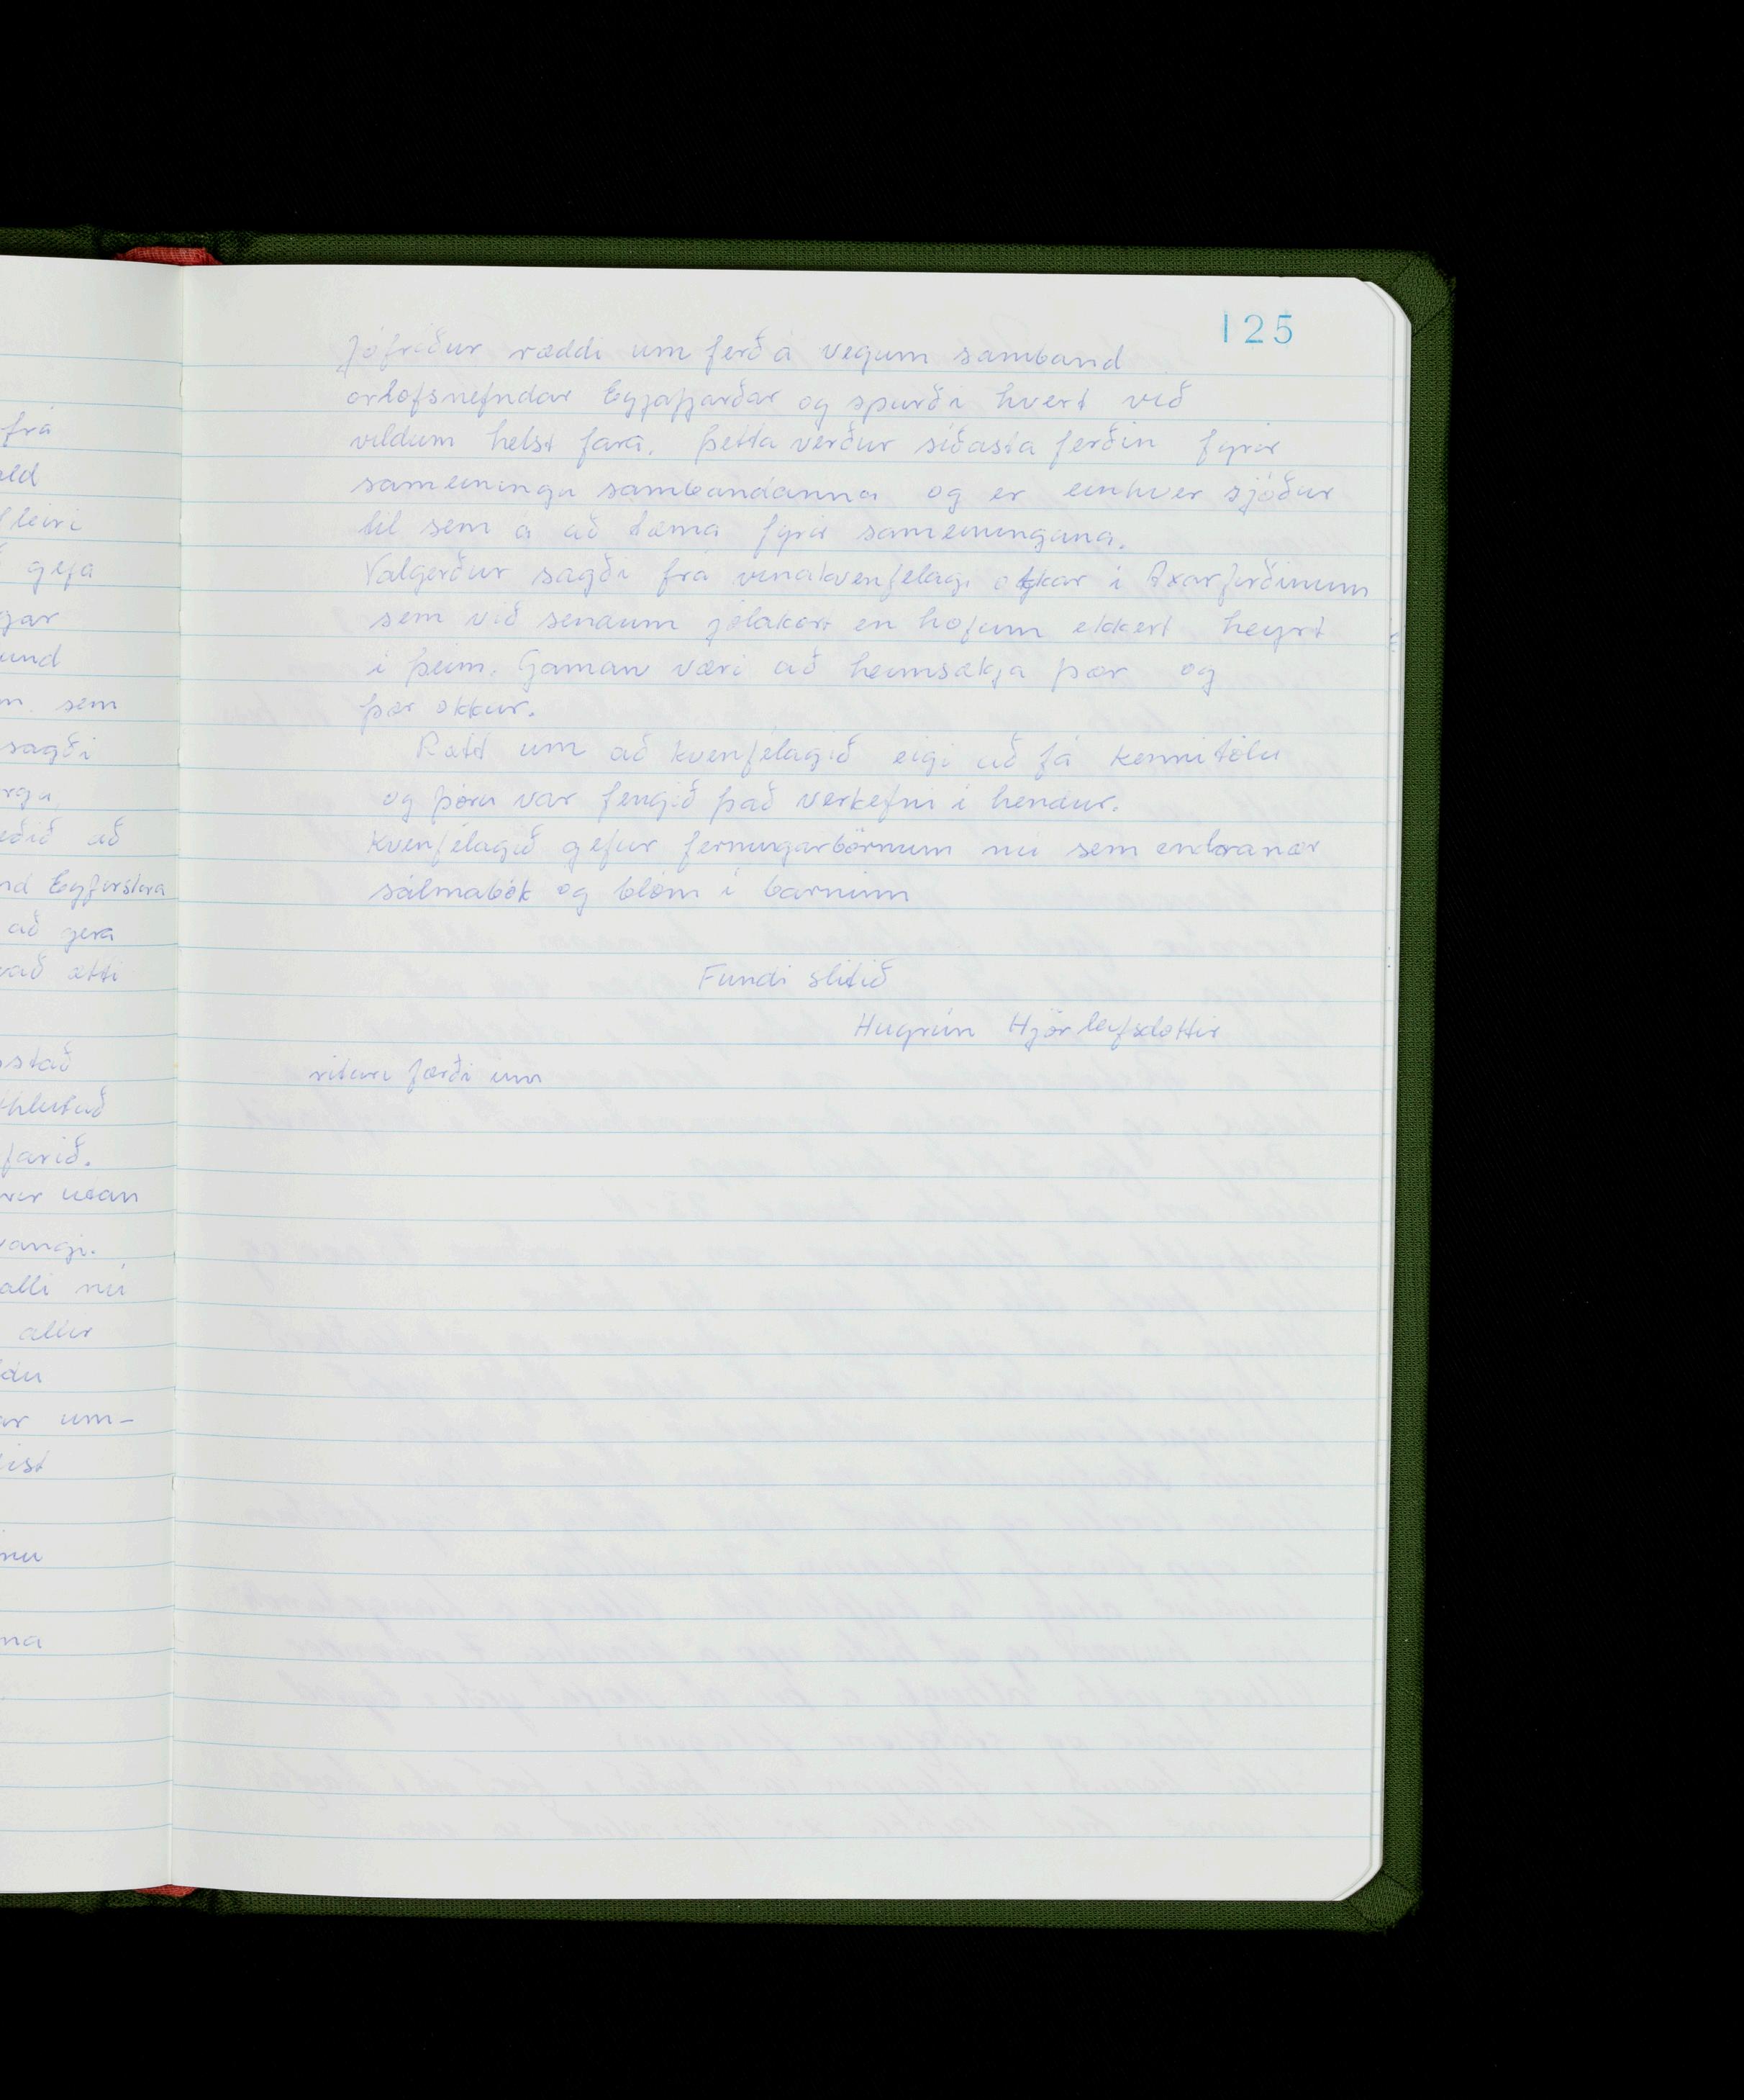 125
Jófríður ræddi um ferð á vegum samband
orlofsnefndar Eyjafjarðar og spurði hvert við
vildum helst fara. Þetta verður síðasta ferðin fyrir
sameiningu sambandanna og er einhver sjóður
til sem á að tæma fyrir sameininguna.
Valgerður sagði frá vinakvenfélagi okkar í Axarfirðinum
sem við sendum jólakort en höfum ekkert heyrt
í þeim. Gaman væri að heimsækja þær og
þær okkur.
Rætt um að kvenfélagið eigi að fá kennitölu
og Þóru var fengið það verkefni í hendur.
Kvenfélagið gefur fermingarbörnum nú sem endranær
sálmabók og blóm í barminn
Fundi slitið
Hugrún Hjörleifsdóttir
ritari færði inn
frá
fleiri
gefa
sem
sagði
að
að gera
ætti
farið.
nú
allir
um-